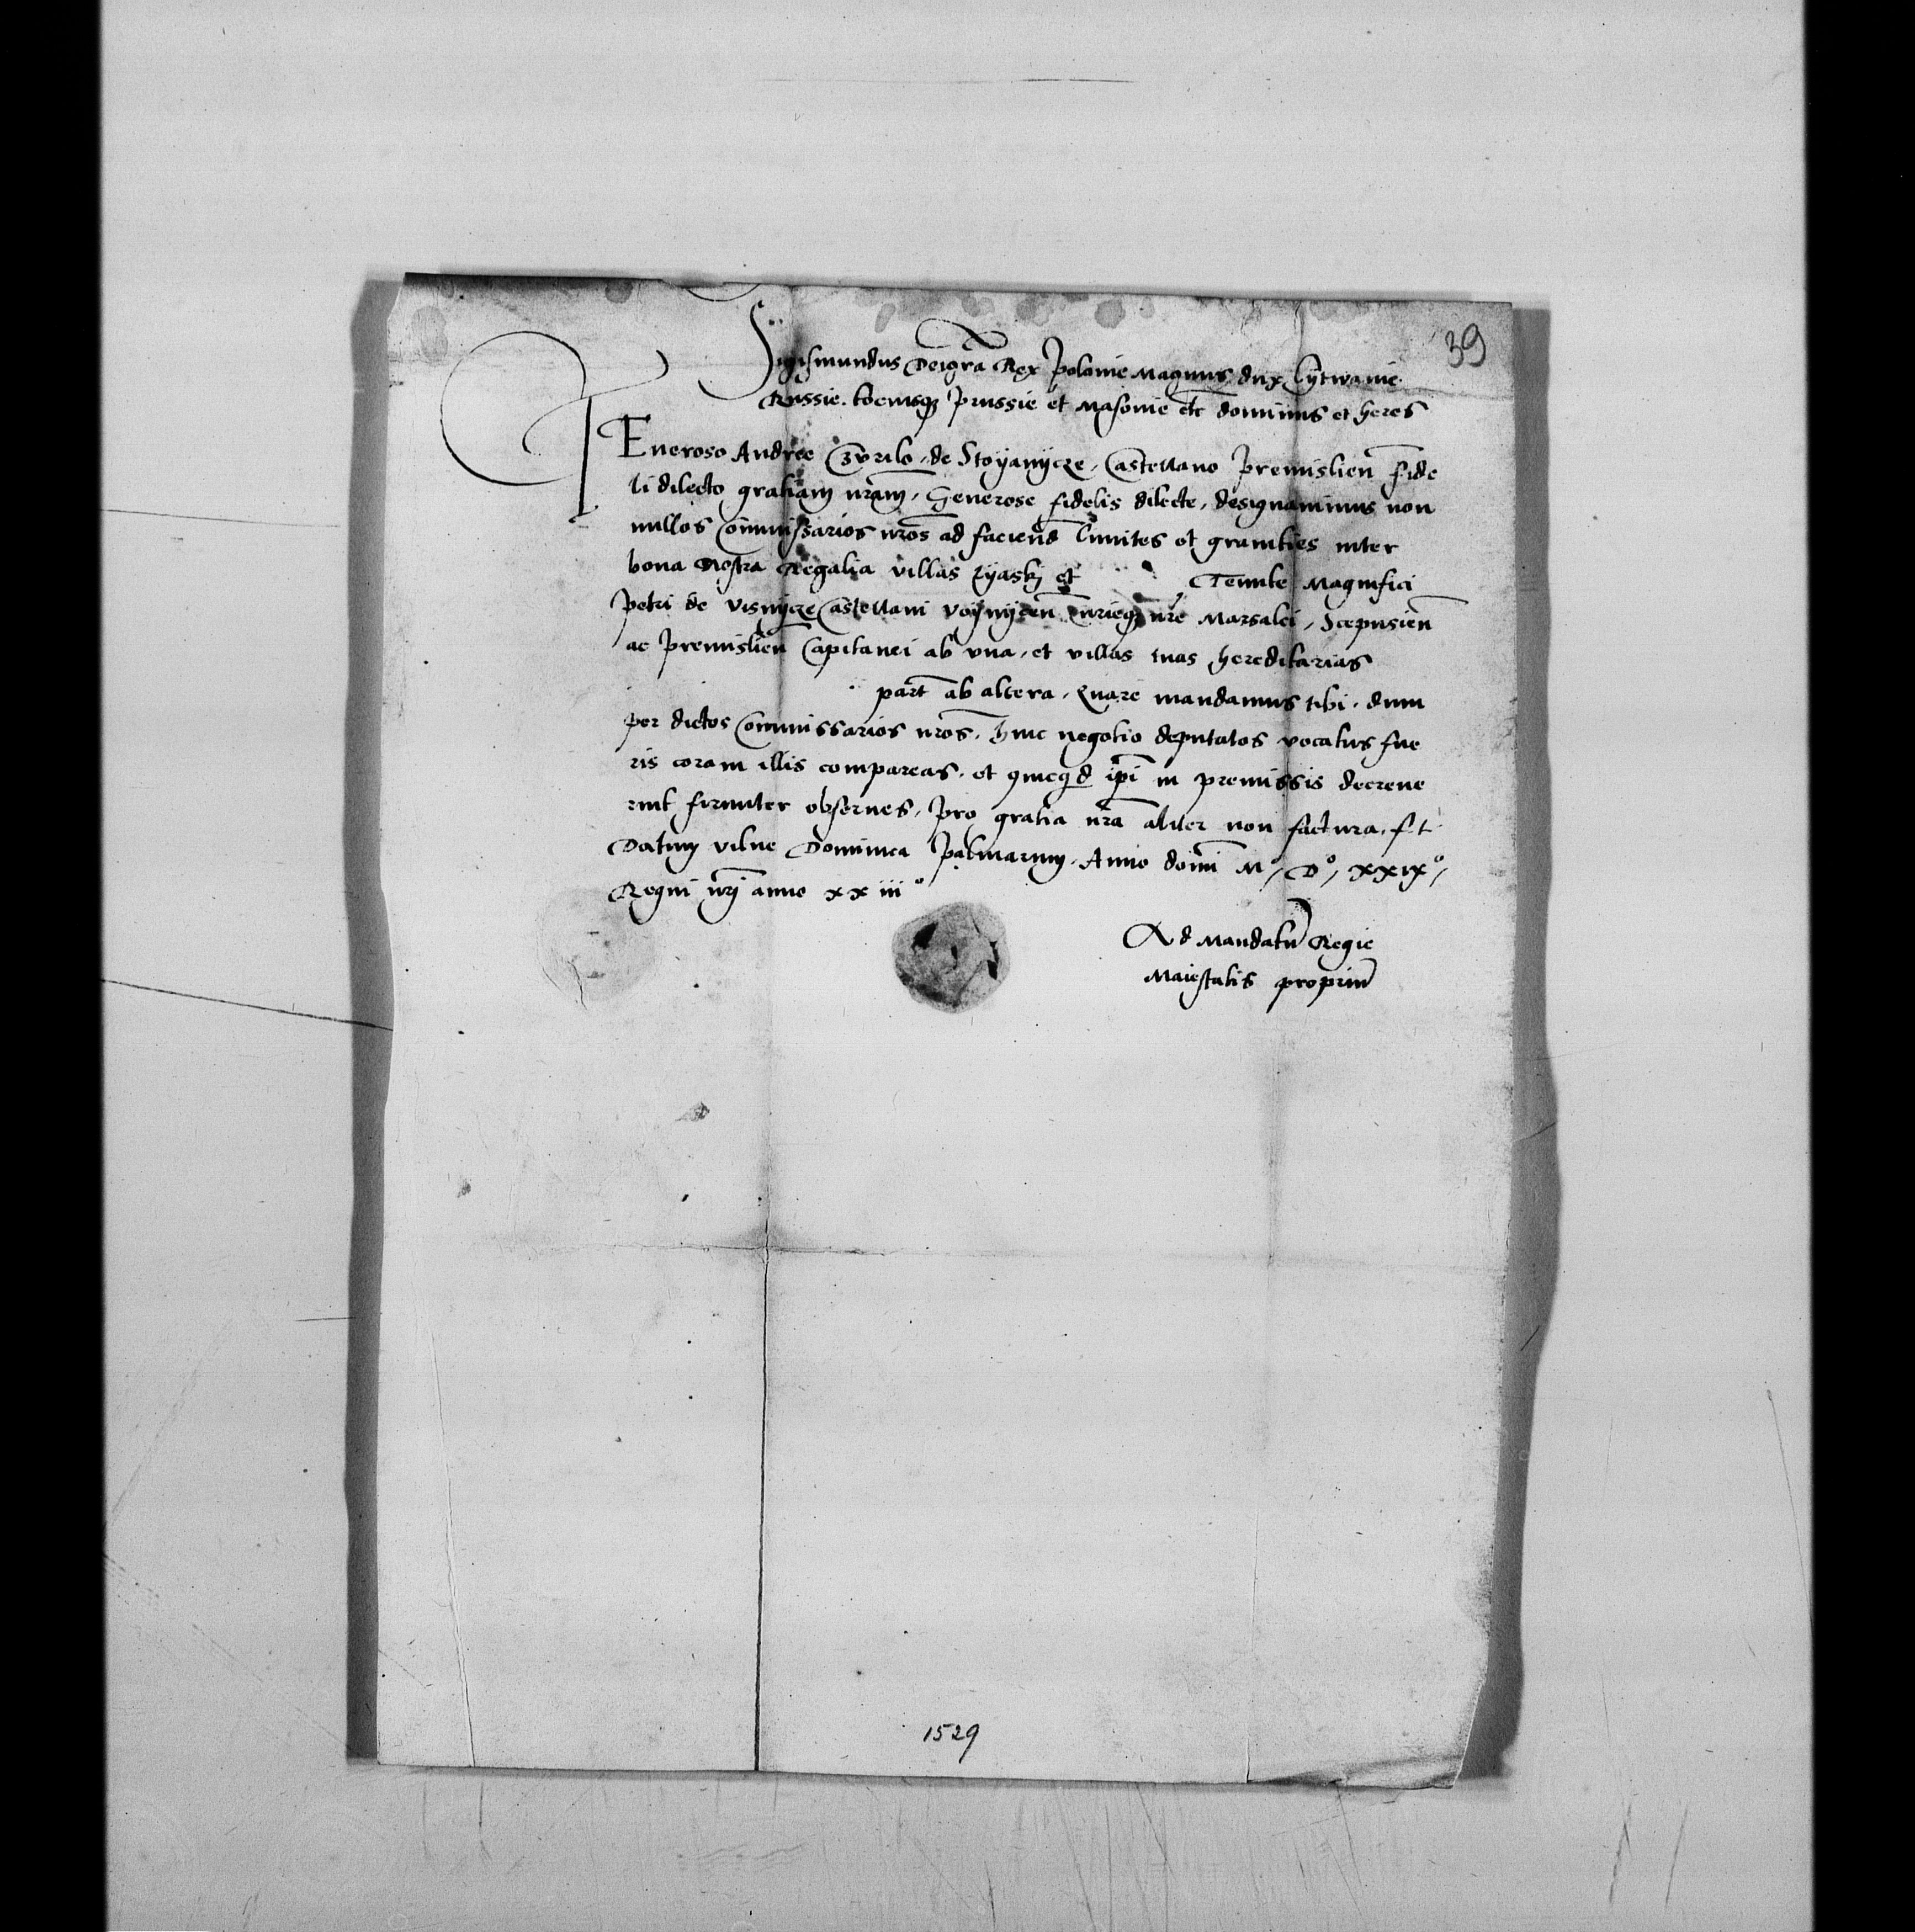 39
Sigismundus Dei grã Rex Polonie Magnus dux Lytwanie
Russie. tociusq Prussie et Masouie etc dominus et heres
GEneroso Andree Czurilo de Stoyanycze, Castellano Premislien̄ fide
li dilecto gratiam nrãm, Generose fidelis dilecte, designauimus non
nullos Com̃missarios nrõs ad faciend̄ limites et granities inter
bona Nostra Regalia villas et Tenute Magnifici
Petri de Visnycze Castellani Voynycen̄ Curieq nrẽ Marsalci, Scepusien̄
ac Premislien̄ Capitanei ab vna, et villas tuas hereditarias
part̄ ab altera, Quare mandamus tibi, dum
per dictos Com̃missarios nrõs, huic negotio deputatos vocatus fue
ris coram illis compareas, et quicq̃d ip̃i in premissis decreue
rint firmiter obserues, pro gratia nrã aliter non factura, f.t.
Datum vilne Dominica Palmarum, Anno domĩ M°, D°, xxix°,
Regni nrĩ anno xxiii°
Ad Mandatū Regie
Maiestatis propriū
1529